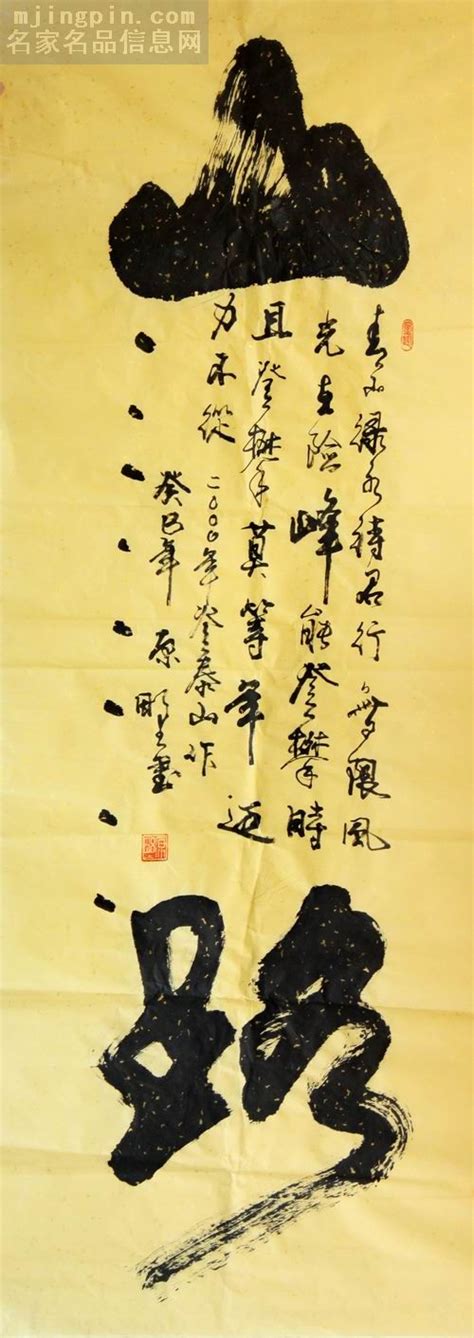 mjingpin.com
名家名品信息网
山
青山绿水待君行無限風
光在险峰能登攀時
且登攀莫等年迈
力不從
二〇〇〇年登泰山作
癸巳年 原 書
路